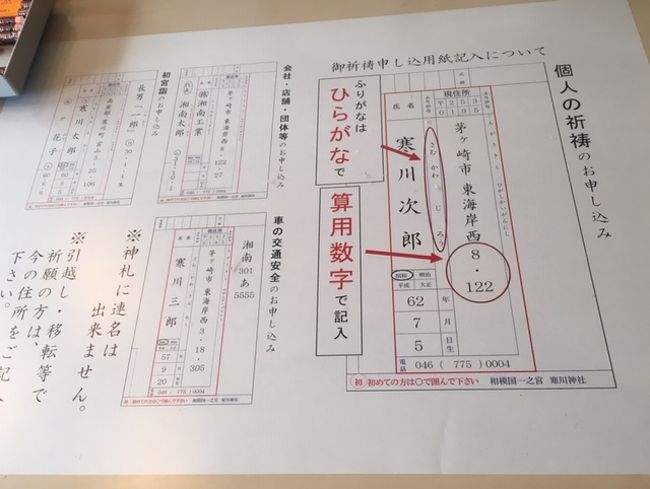 御祈祷申し込用紙記入について
個人の祈祷のお申し込み
現住所
〒253
0195
茅ヶ崎市東海岸西8・122
ふりがなは
ひらがなで
算用数字で記入
氏名
さむかわ じろう
寒川次郎
昭和
明治
平成
大正
62年
7月
5日生
電話 046(775)0004
初 初めての方は〇で囲んで下さい 相模国一之宮 寒川神社
会社・店舗・団体等のお申し込み
茅ヶ崎市東海岸西8・122
㈱湘南工業
湘南太郎
初宮詣のお申し込み
長男「一郎」
高座郡寒川町宮山3・20・106
寒川太郎
花子
車の交通安全のお申し込み
湘南301あ5555
茅ヶ崎市東海岸西3・18・305
寒川三郎
57
9
20
046(775)0004
※神札に連名は
出来ません。
※引越し・移転等で
祈願の方は、
今の住所を
下さい。